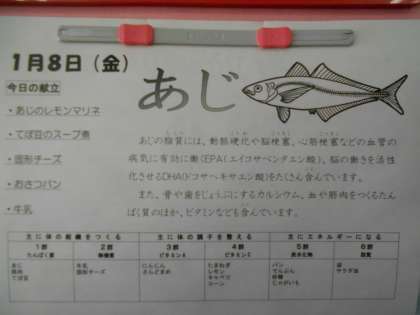 1月8日（金）
あじ
今日の献立
・あじのレモンマリネ
・てぼ豆のスープ煮
・固形チーズ
・おさつパン
・牛乳
あじの脂質には、動脈硬化や脳梗塞、心筋梗塞などの血管の
病気に有効に働くEPA(エイコサペンタエン酸)、脳の働きを活性
化させるDHA(ドコサヘキサエン酸)をたくさん含んでいます。
また、骨や歯をじょうぶにするカルシウム、血や筋肉をつくるたん
ぱく質のほか、ビタミンなども含んでいます。
主に体の組織をつくる 主に体の調子を整える 主にエネルギーになる
1群 2群 3群 4群 5群 6群
たんぱく質 無機質 ビタミンA ビタミンC 炭水化物 脂質
あじ 牛乳 にんじん たまねぎ パン 油
鶏肉 固形チーズ さんどまめ レモン でんぷん サラダ油
てぼ豆 キャベツ 砂糖
コーン じゃがいも